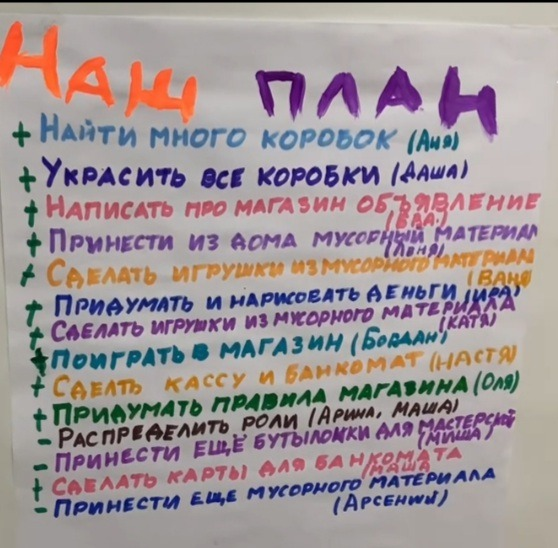 Наш план
+ Найти много коробок (Аня)
+ Украсить все коробки (Даша)
+ Написать про магазин объявление
+ Принести из дома мусорный материал
(Лёня)
+ Сделать игрушки из мусорного материала
(Ваня)
+ Придумать и нарисовать деньги (Ира)
+ Сделать игрушки из мусорного материала
(Катя)
+ Поиграть в магазин (Богдан)
+ Сделть кассу и банкомат (Настя)
+ Придумать правила магазина (Оля)
- Распределить роли (Арина, Маша)
- Принести ещё бутылочки для мастерской
(Миша)
+ Сделать карты для банкомата
(Маша
- Принести еще мусорного материала
(Арсений)